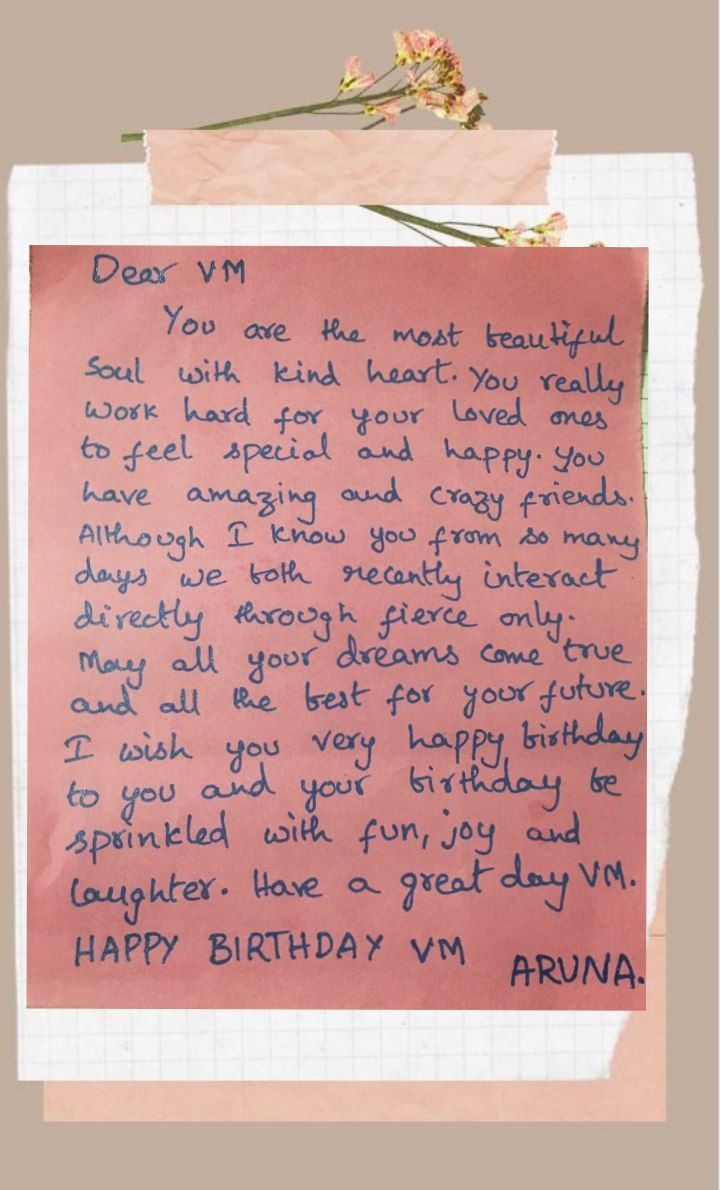 Dear VM
You are the most beautiful
soul with kind heart. You really
work hard for your loved ones
to feel special and happy. You
have amazing and crazy friends.
Although I know you from so many
days we both recently interact
directly through fierce only.
May all your dreams come true
and all the best for your future.
I wish you very happy birthday
to you and your birthday be
sprinkled with fun, joy and
laughter. Have a great day VM.
HAPPY BIRTHDAY VM
ARUNA.